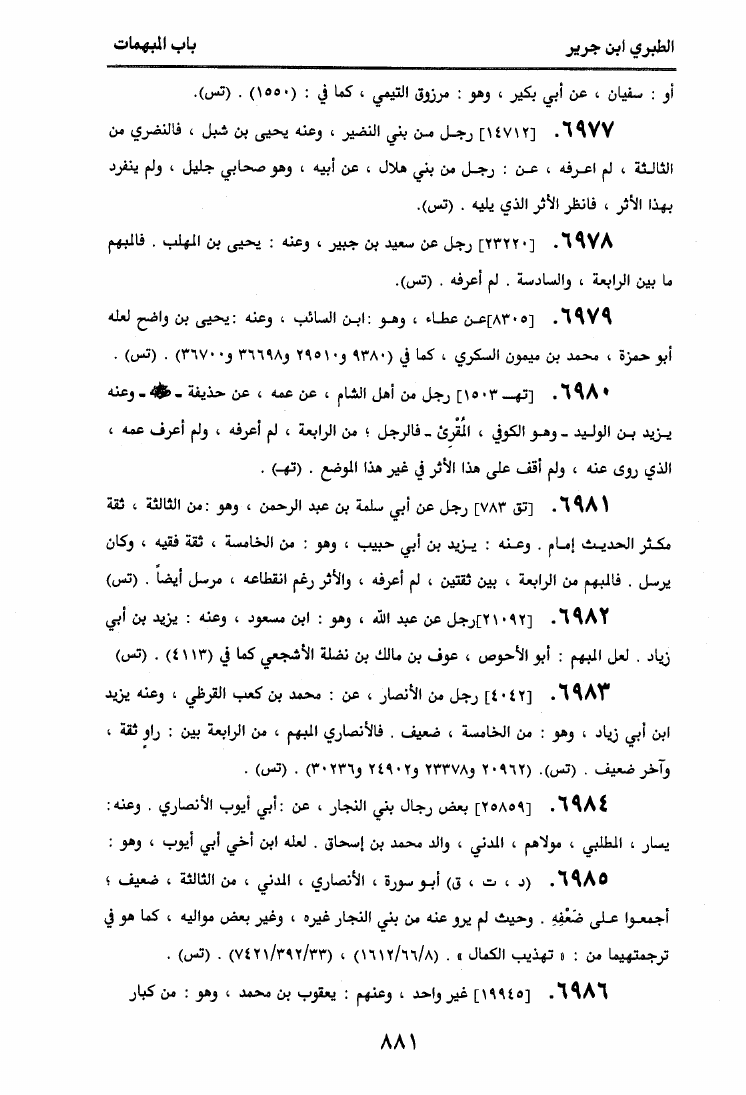 الطبري ابن جرير
باب المبهمات
أو : سفيان ، عن أبي بكير ، وهو : مرزوق التيمي ، كما في : (١٥٥٠) . (تس).
٦٩٧٧. [١٤٧١٢] رجـل مـن بني النضير ، وعنه يحيى بن شبل ، فالنضري من
الثالـثة ، لم اعـرفه ، عـن : رجـل من بني هلال ، عن أبيه ، وهو صحابي جليل ، ولم ينفرد
بهذا الأثر ، فانظر الأثر الذي يليه . (تس).
٦٩٧٨. [٢٣٢٢٠] رجل عن سعيد بن جبير ، وعنه : يحيى بن المهلب . فالمبهم
ما بين الرابعة ، والسادسة . لم أعرفه . (تس).
٦٩٧٩. [٨٣٠٥]عـن عطـاء ، وهـو :ابـن السائب ، وعنه :يحيى بن واضح لعله
أبو حمزة ، محمد بن ميمون السكري ، كما في (٩٣٨٠ و٢٩٥١٠ و٣٦٦٩٨ و٣٦٧٠٠) . (تس) .
٦٩٨٠. [تهـ ١٥٠٣] رجل من أهل الشام ، عن عمه ، عن حذيفة ـ ﷺ ـ وعنه
يـزيد بـن الولـيد ـ وهـو الكوفي ، المُقْرِئ ـ فالرجل ؛ من الرابعة ، لم أعرفه ، ولم أعرف عمه ،
الذي روى عنه ، ولم أقف على هذا الأثر في غير هذا الموضع . (تهـ) .
٦٩٨١. [تق ٧٨٣] رجل عن أبي سلمة بن عبد الرحمن ، وهو :من الثالثة ، ثقة
مكـثر الحديـث إمـام . وعـنه : يـزيد بن أبي حبيب ، وهو : من الخامسة ، ثقة فقيه ، وكان
يرسل . فالمبهم من الرابعة ، بين ثقتين ، لم أعرفه ، والأثر رغم انقطاعه ، مرسل أيضاً . (تس)
٦٩٨٢. [٢١٠٩٢]رجل عن عبد الله ، وهو : ابن مسعود ، وعنه : يزيد بن أبي
زياد . لعل المبهم : أبو الأحوص ، عوف بن مالك بن نضلة الأشجعي كما في (٤١١٣) . (تس)
٦٩٨٣. [٤٠٤٢] رجل من الأنصار ، عن : محمد بن كعب القرظي ، وعنه يزيد
ابن أبي زياد ، وهو : من الخامسة ، ضعيف . فالأنصاري المبهم ، من الرابعة بين : راوٍ ثقة ،
وآخر ضعيف . (تس). (٢٠٩٦٢ و٢٣٣٧٨ و٢٤٩٠٢ و٣٠٢٣٦) . (تس) .
٦٩٨٤. [٢٥٨٥٩] بعض رجال بني النجار ، عن :أبي أيوب الأنصاري . وعنه:
يسار ، المطلبي ، مولاهم ، المدني ، والد محمد بن إسحاق . لعله ابن أخي أبي أيوب ، وهو :
٦٩٨٥. (د ، ت ، ق) أبـو سورة ، الأنصاري ، المدني ، من الثالثة ، ضعيف ؛
أجمعـوا علـى ضَعْفِهِ . وحيث لم يرو عنه من بني النجار غيره ، وغير بعض مواليه ، كما هو في
ترجمتهيما من : « تهذيب الكمال » . (١٦١٢/٦٦/٨) ، (٧٤٢١/٣٩٢/٣٣) . (تس) .
٦٩٨٦. [١٩٩٤٥] غير واحد ، وعنهم : يعقوب بن محمد ، وهو : من كبار
٨٨١